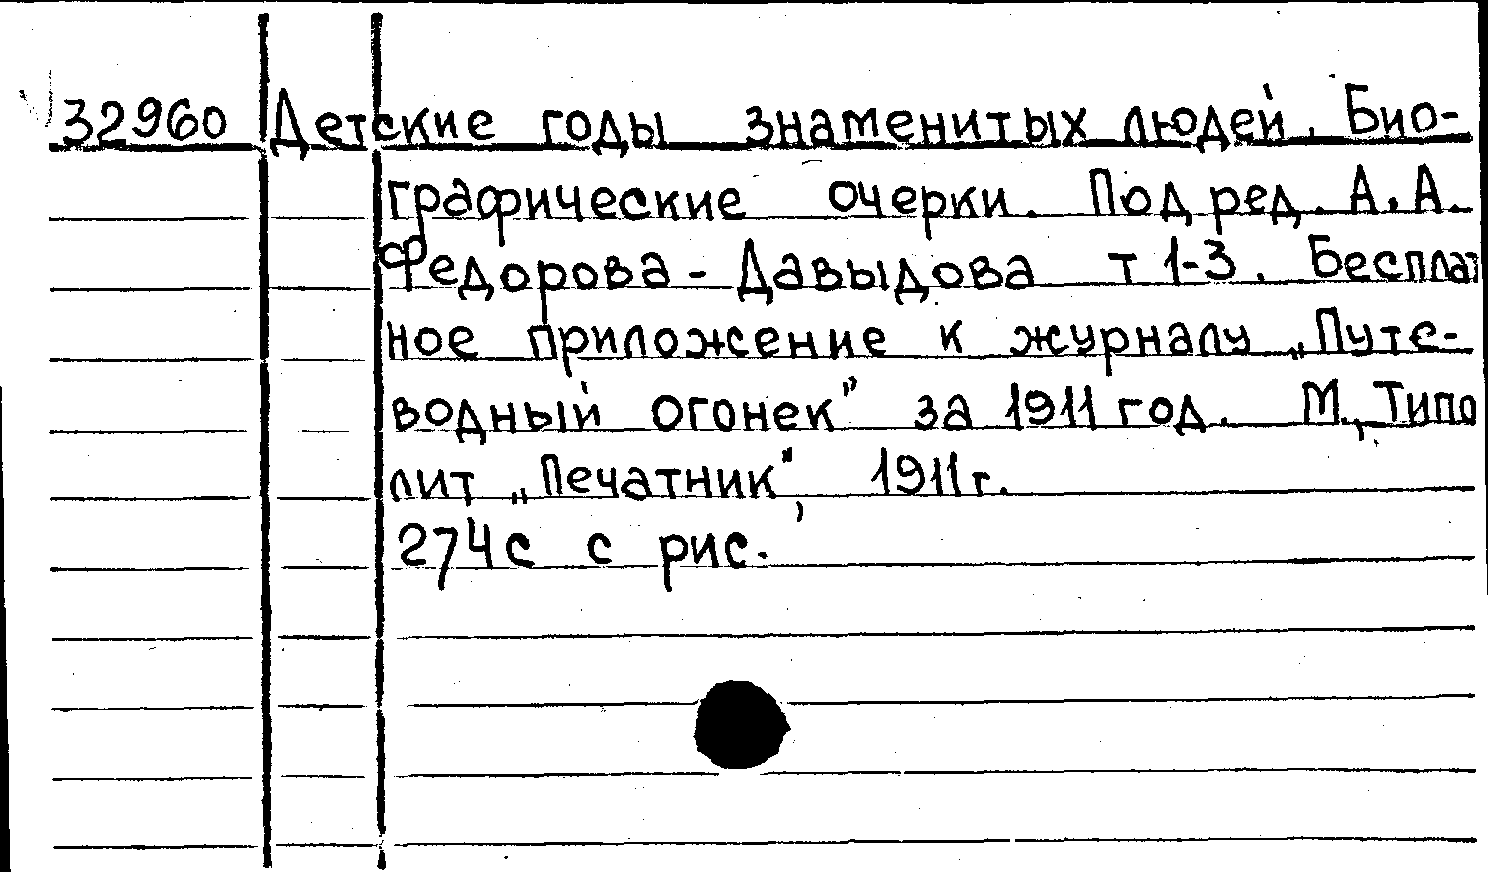 32960 Детские годы знаменитых людей. Био-
графические очерки. Под ред. А. А.
Федорова-Давыдова т 1-3. Бесплат
ное приложение к журналу „Путе-
водный огонек" за 1911 год. М., Типо
лит „Печатник", 1911 г.
274 с с рис.